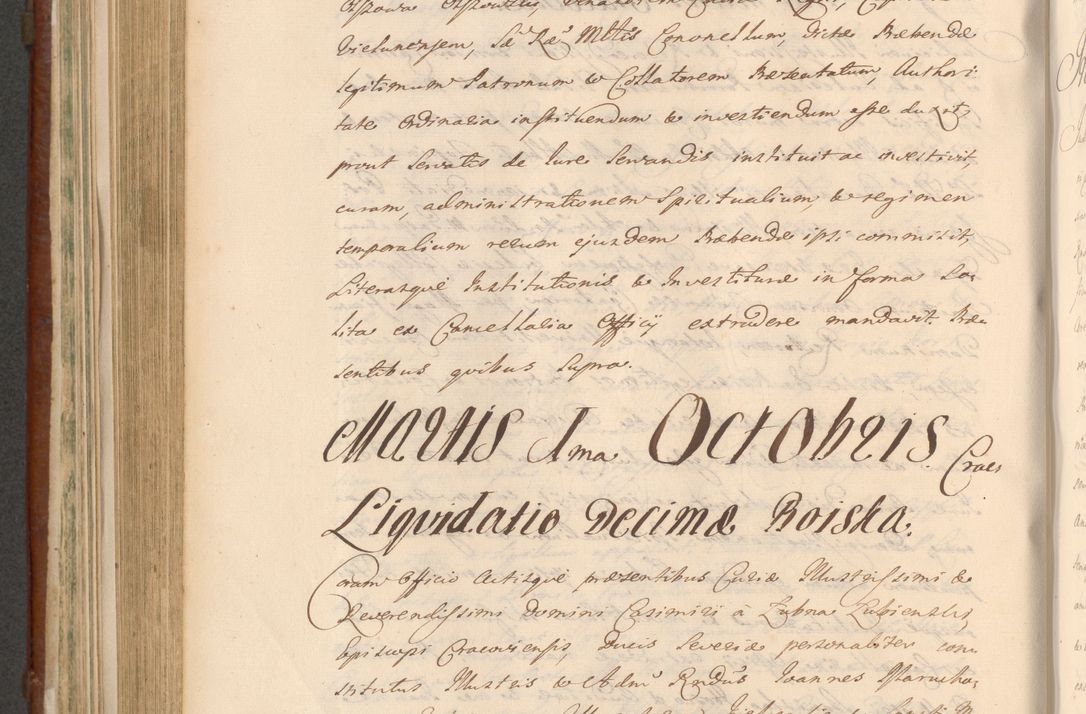 Vielunensem, Sæ Ræ Mttis Cononellum, dictæ Præbendæ
legitimum Patronum & Collatorem Præsentatum, Authori-
tate Ordinaria instituendum & investiendum esse duxit
prout servatis de Iure servandis instituit ac investivit,
curam, administrationem Spiritualium, & regimen
temporalium rerum ejusdem Præbendæ ipsi commisit,
Literasque Institutionis & Investituræ in forma So-
lita ex Cancellaria Officij extradere mandavit. Præ-
sentibus quibus supra.
Martis 1ma Octobris. Crac:
Liquidatio Decimæ Boiska.
Coram Officio Actisque præsentibus Curiæ Illustrissimi &
Reverendissimi Domini Casimiri à Łubna Łubienski,
Episcopi Cracoviensis, Ducis Severiæ personaliter con-
stitutus Illustris & Admo Rendus Ioannes Starucha,